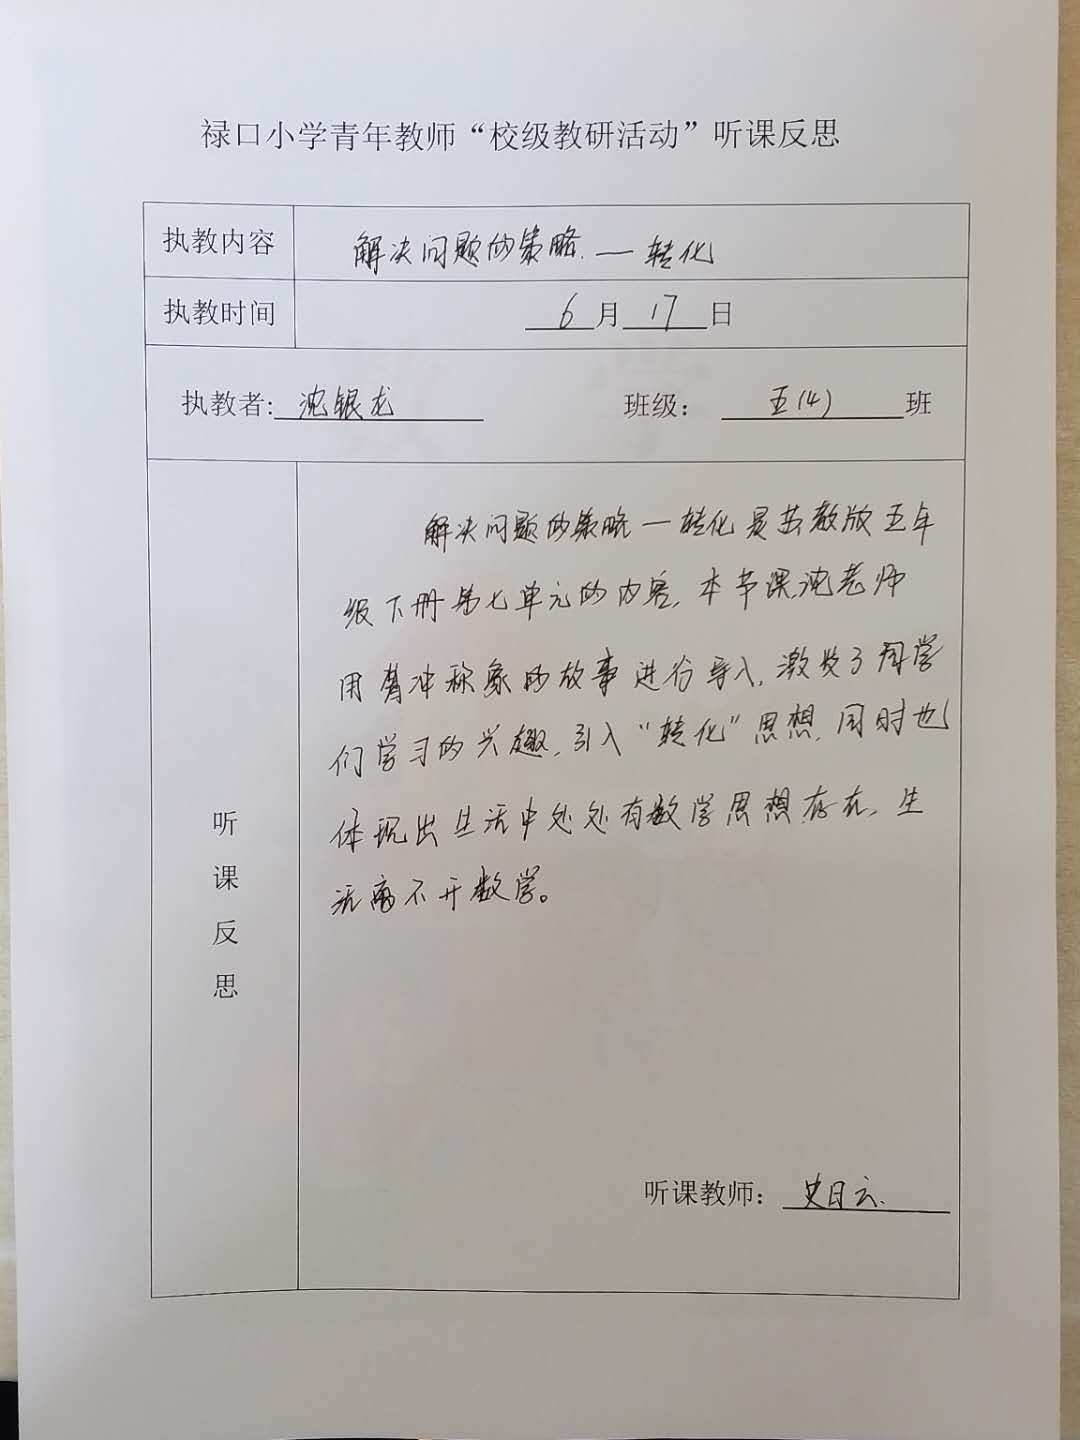 禄口小学青年教师“校级教研活动”听课反思
执教内容 解决问题的策略.—转化
执教时间 6月17日
执教者:沈银龙 班级：五(4)班
听课反思
解决问题的策略—转化是苏教版五年
级下册第七单元的内容,本节课,沈老师
用曹冲称象的故事进行导入,激发了同学
们学习的兴趣,引入“转化”思想,同时也
体现出生活中处处有数学思想存在,生
活离不开数学。
听课教师：史日云.